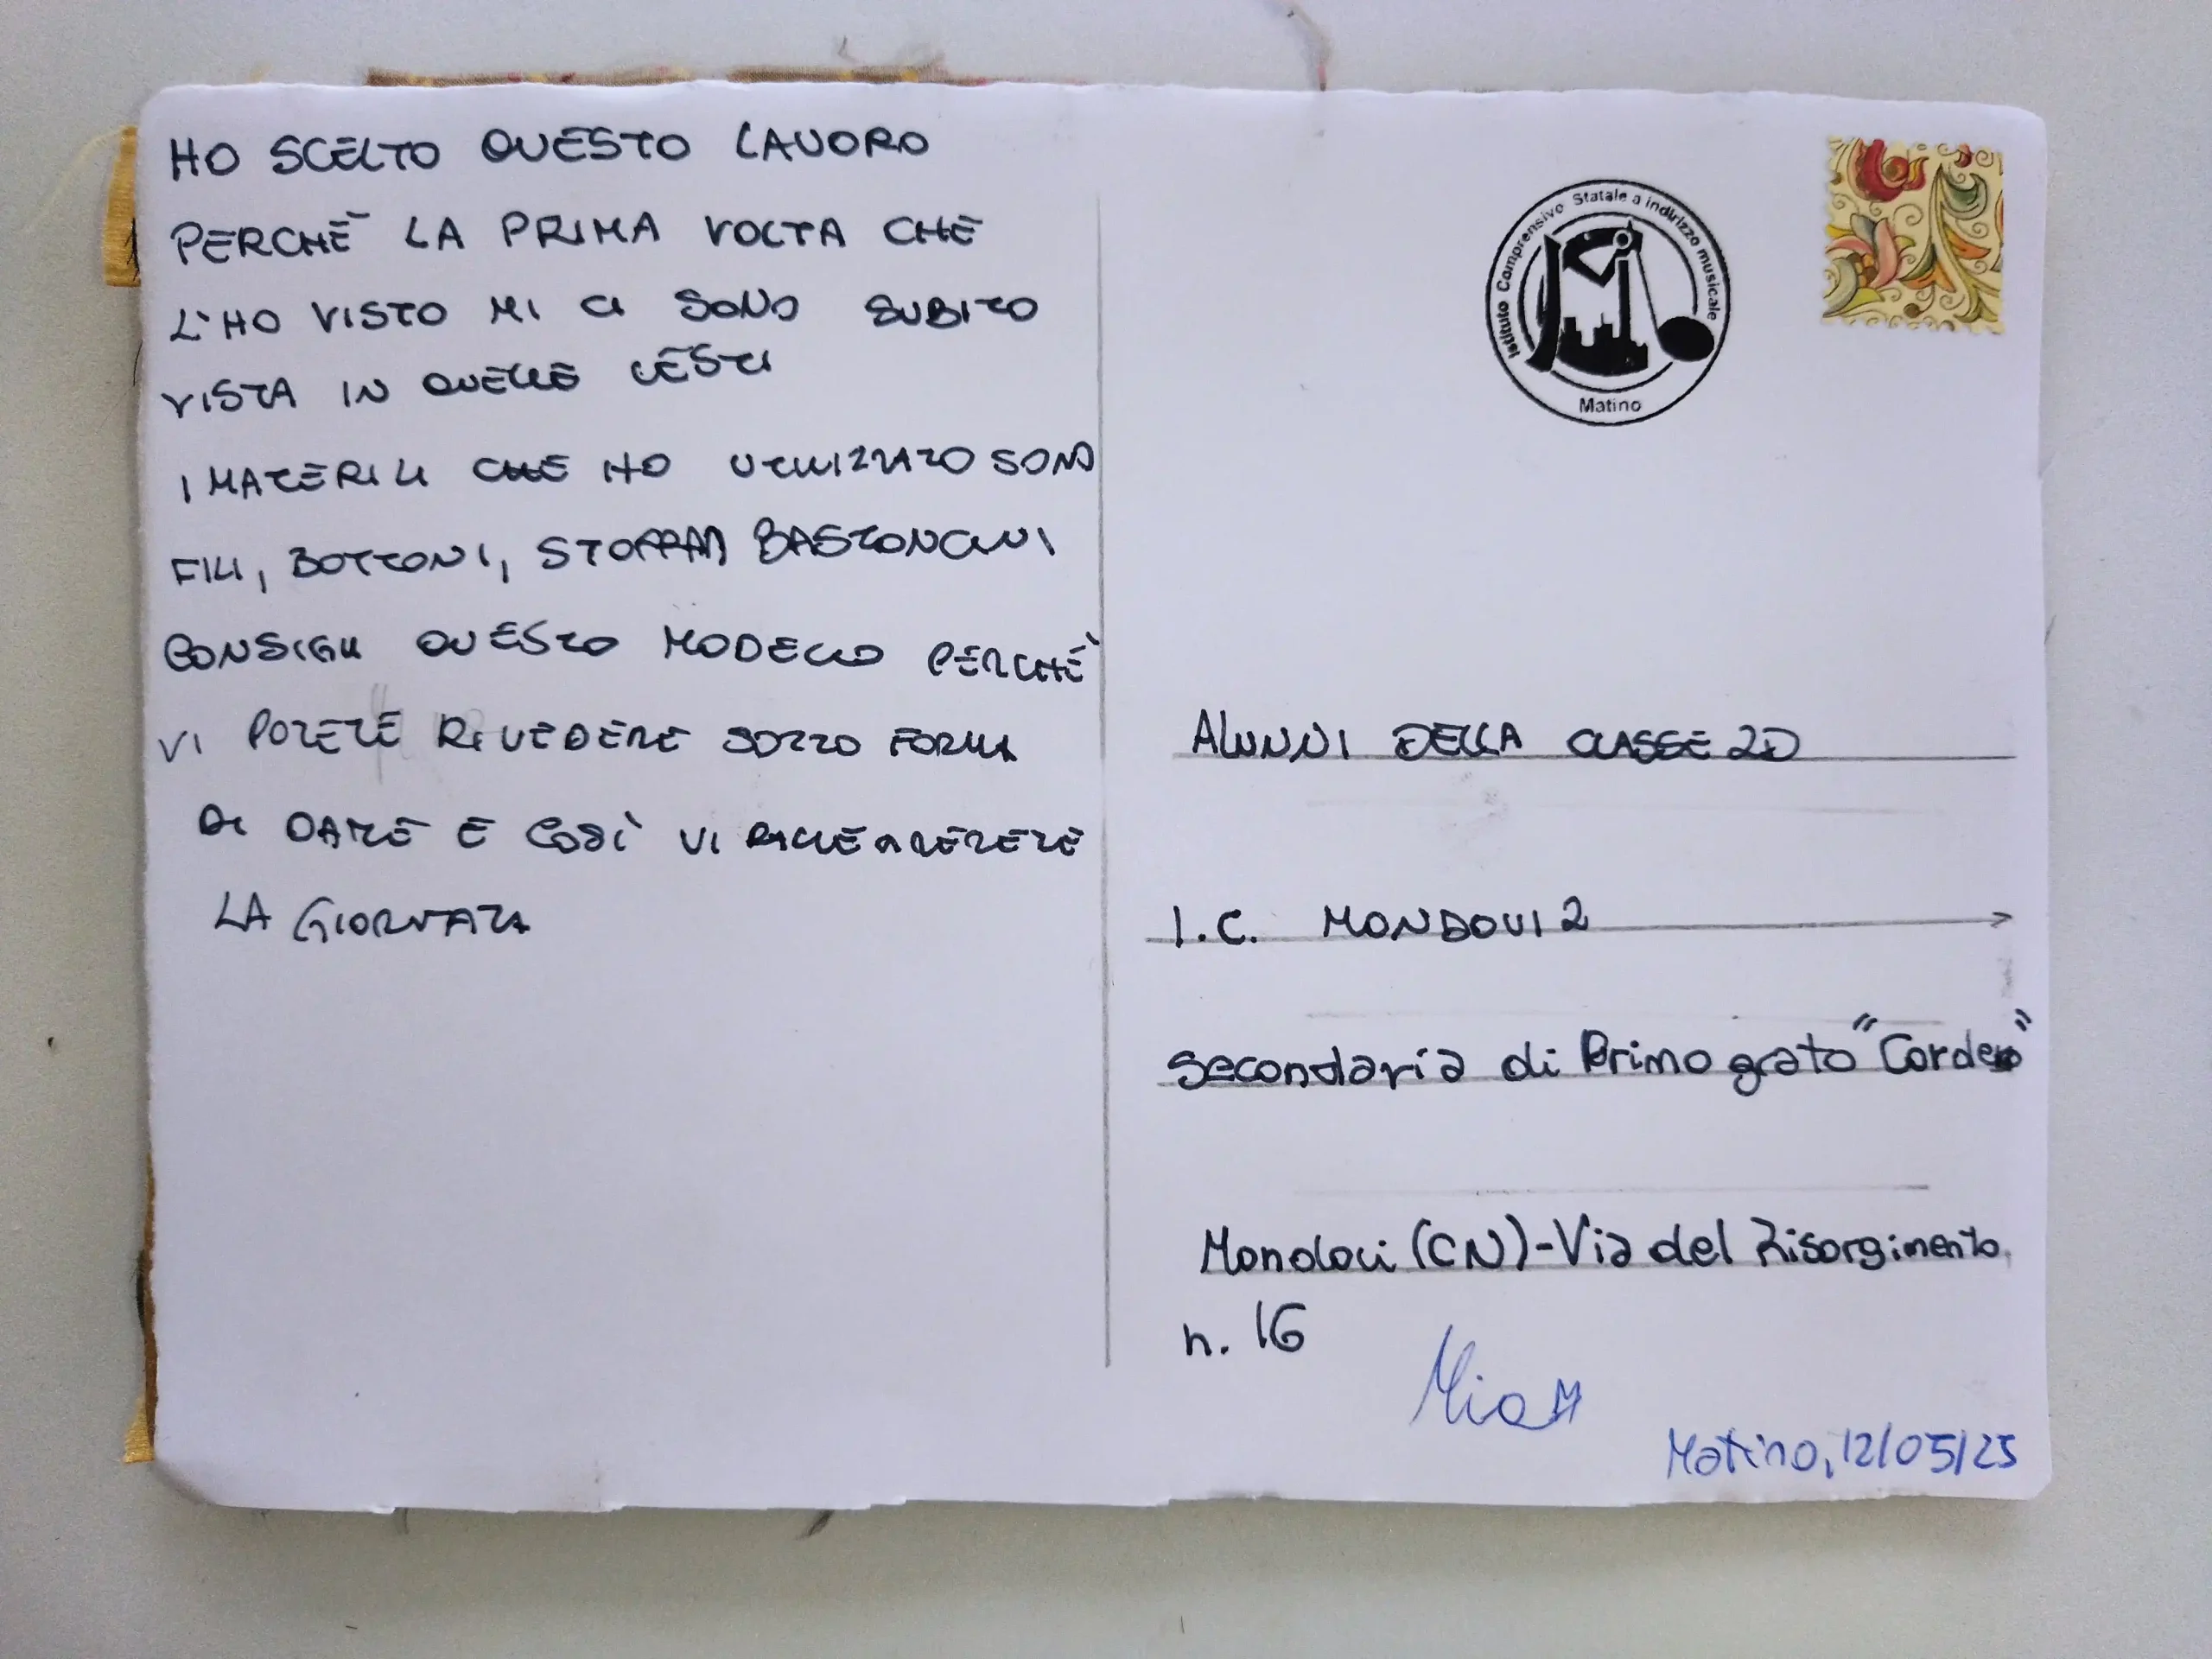 HO SCELTO QUESTO LAVORO
PERCHÉ LA PRIMA VOLTA CHE
L'HO VISTO MI CI SONO SUBITO
VISTA IN QUELLE VESTI
I MATERILI CHE HO UTILIZZATO SONO
FILI, BOTTONI, STOFFA BASTONCINI
CONSIGLI QUESTO MODELLO PERCHÉ
VI POTETE RIVEDERE SOTTO FORMA
DI DAME E COSÌ VI RALLEGRERETE
LA GIORNATA
Istituto Comprensivo Statale a indirizzo musicale
Matino
ALUNNI DELLA CLASSE 2D
I.C. MONDOVI 2
secondaria di Primo grato "Cordero"
Mondovi (CN)-Via del Risorgimento
n. 16
Mia M
Matino, 12/05/25